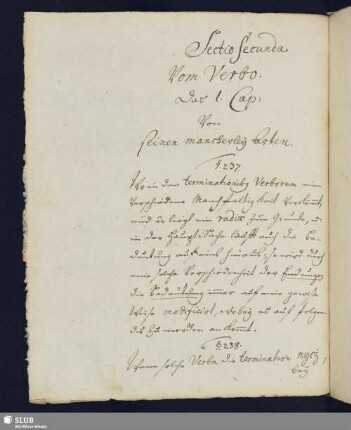 Sectio Secunda
Vom Verbo.
Das 1. Cap:
Von
seinen mancherley Arten.
§ 237.
Wo in den terminationibg Verborum eine
verschiedene Manchfaltigkeit vorkomt,
und da liegt ein radix zum Grunde, u.
in der Haupt-Sache laufft auch die Be-
deutung auf eins hinaus; so wird durch
eine solche Verschiedenheit der Endungen
die Bedeutung immer auf eine gewisse
Weise modificirt, wobey es auf folgen-
des zu mercken an kommt.
§ 238.
Wenn solche Verba die termination
bey
SLUB
Wir führen Wissen.